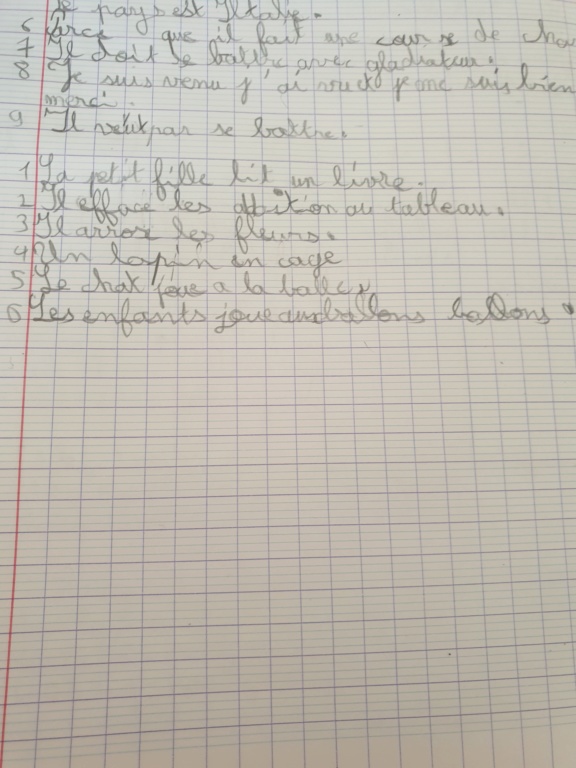 Le pays est Italie.
6 Parce que il fait une course de cha
7 Il doit se battre avec gladiateur.
8 Je suis venu j'ai je me suis bien
merci.
9 Il veut pas se battre.
1 La petit fille lit un livre.
2 Il efface les au tableau.
3 Il arrose les fleurs.
4 Un lapin en cage
5 Le chat joue a la balle
6 Les enfants joue ballons